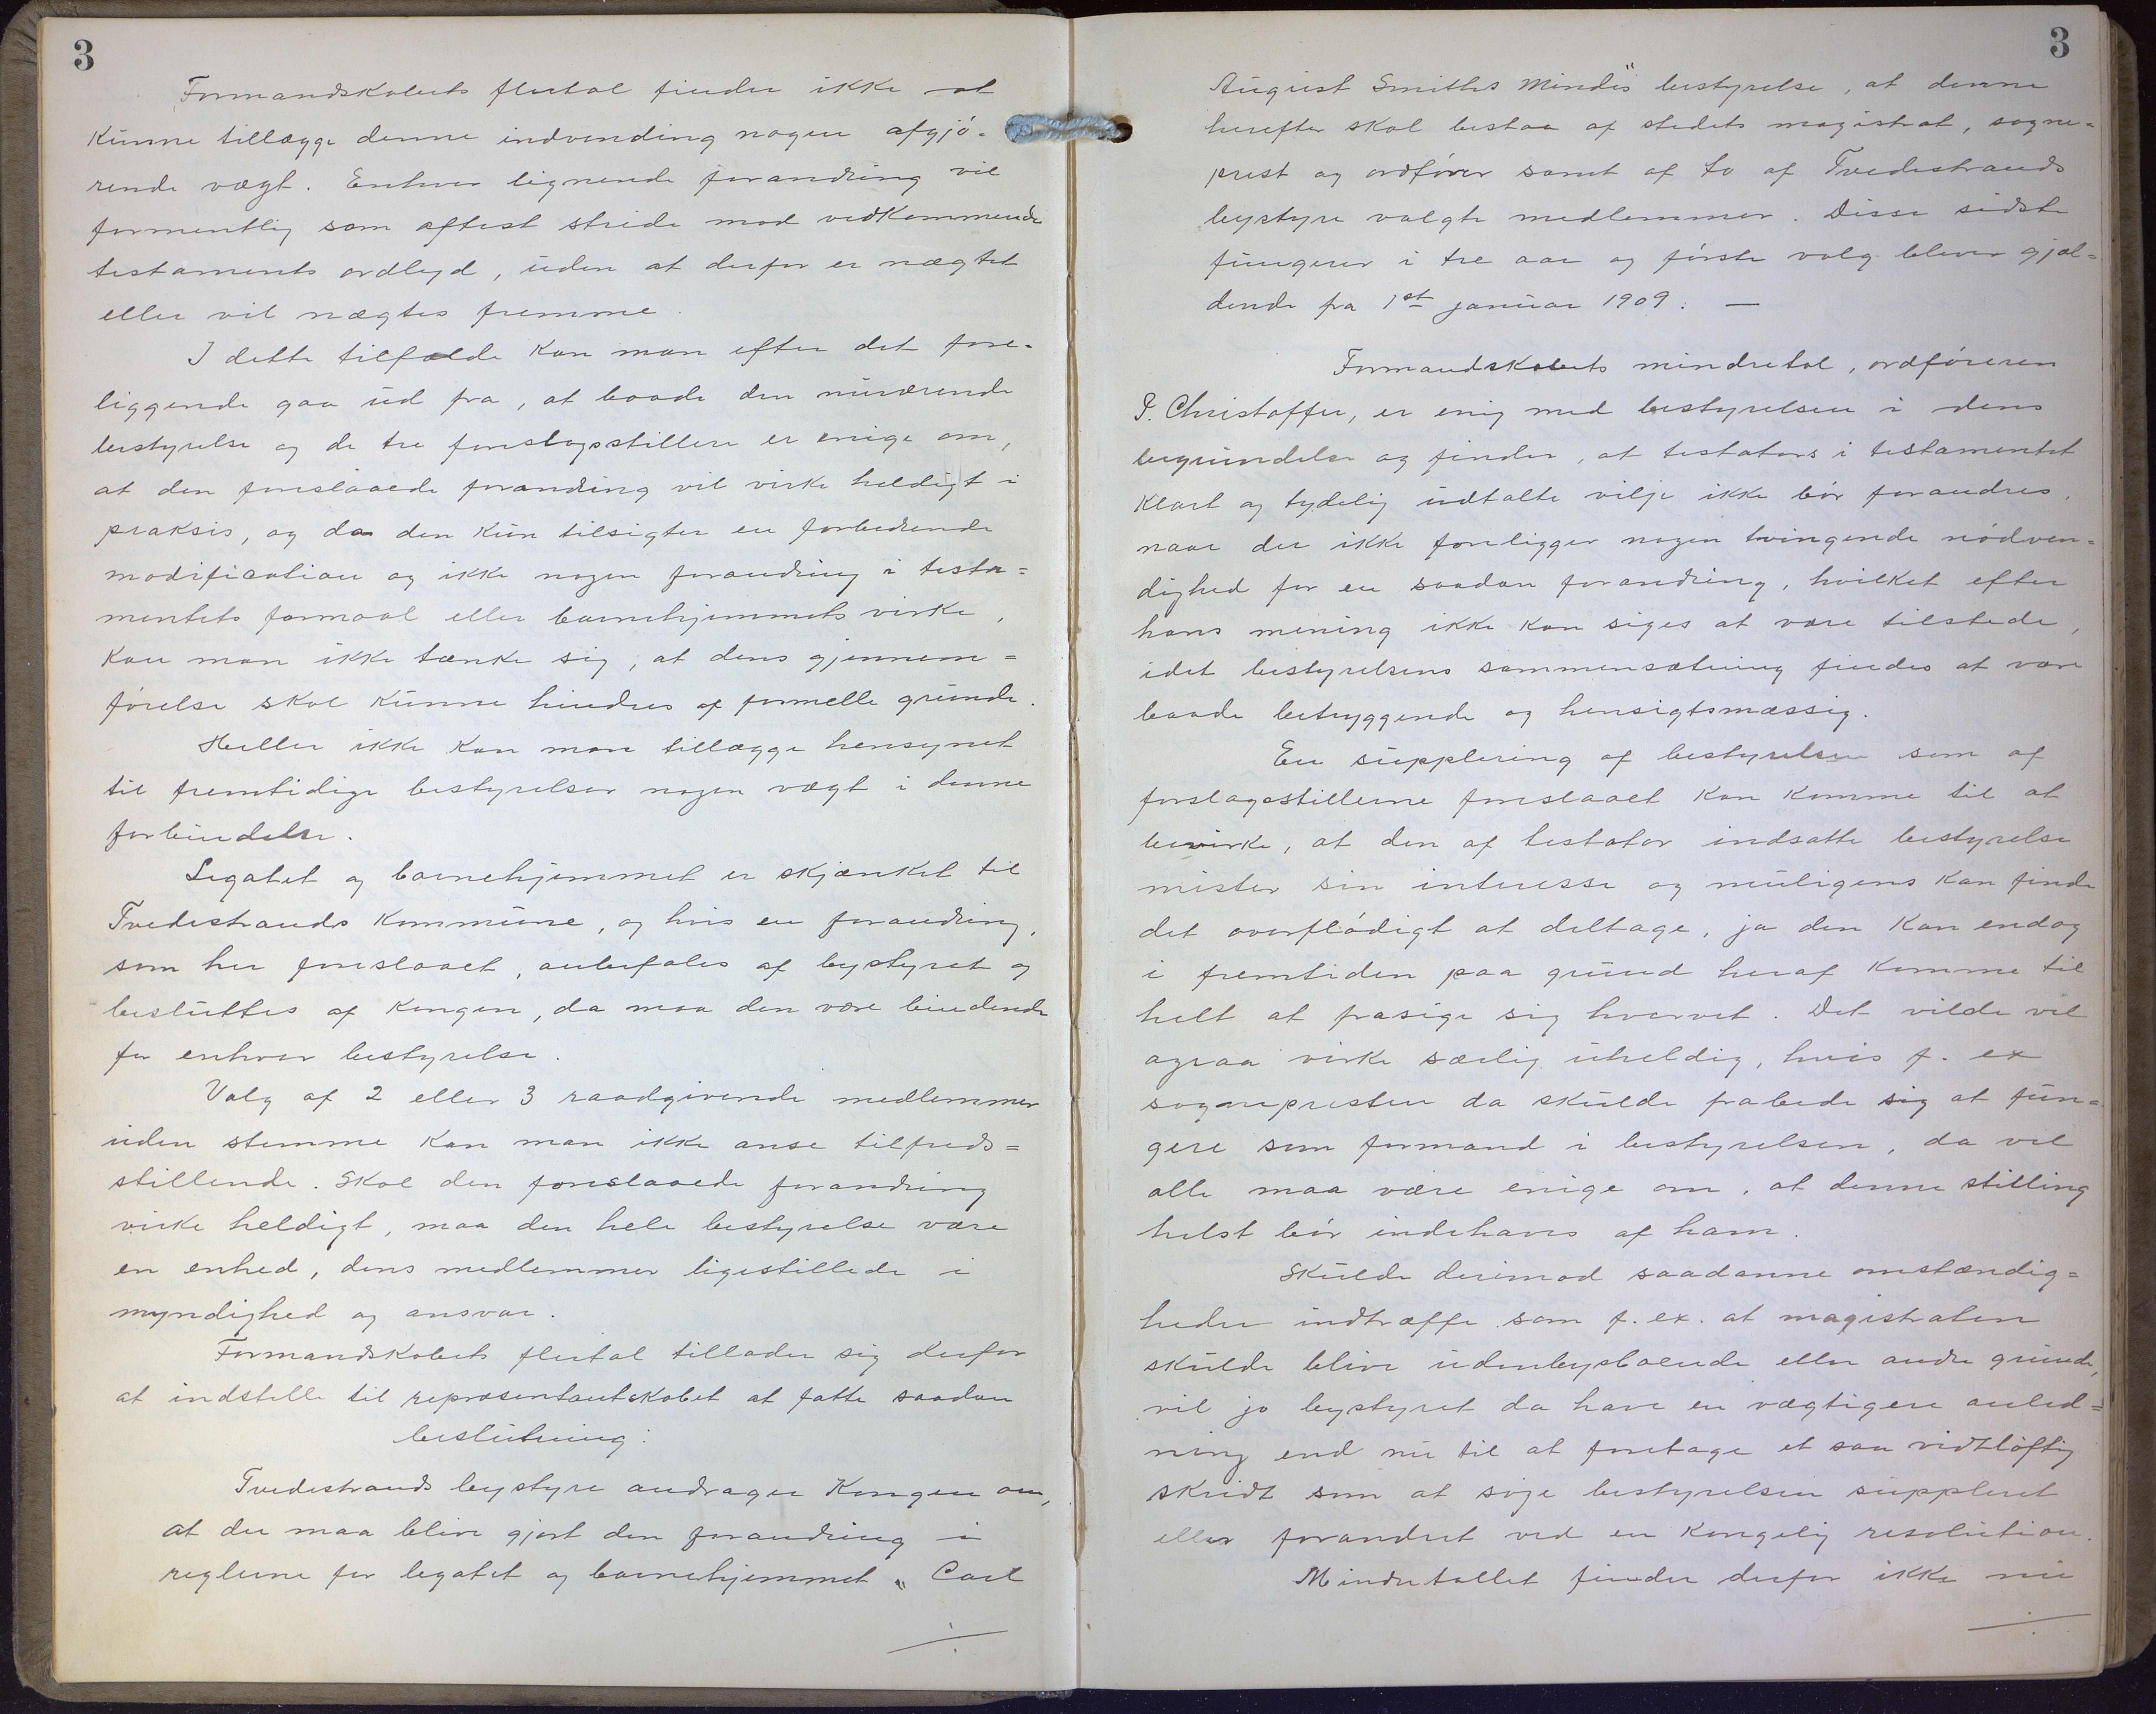 3
Formandskabets flertal finder ikke at
kunne tillægge denne indvending nogen afgjø-
rende vægt. Enhver lignende forandring vil
formentlig som oftest stride mod vedkommende
testaments ordlyd, uden at derfor er nægtet
eller vil nægtes fremme.
I dette tilfælde kan man efter det fore-
liggende gaa ud fra, at baade den nuværende
bestyrelse og de tre forslagsstillere er enige om,
at den foreslaaede forandring vil virke heldigt i
praksis, og da den kun tilsigter en forbedrende
modification og ikke nogen forandring i testa=
mentets formaal eller barnehjemmets virke,
kan man ikke tænke sig, at dens gjennem=
førelse skal kunne hindres af formelle grunde.
Heller ikke kan man tillægge hensynet
til fremtidige bestyrelser nogen vægt i denne
forbindelse.
Legatet og barnehjemmet er skjænket til
Tvedestrands kommune, og hvis en forandring,
som her foreslaaet, anbefales af bystyret og
besluttes af Kongen, da maa den være bindende
for enhver bestyrelse.
Valg af 2 eller 3 raadgivende medlemmer
uden stemme kan man ikke anse tilfreds=
stillende. Skal den foreslaaede forandring
virke heldigt, maa den hele bestyrelse være
en enhed, dens medlemmer ligestillede i
myndighed og ansvar.
Formandskabets flertal tillader sig derfor
at indstille til repræsentantskabet at fatte saadan
beslutning:
Tvedestrands bystyre andrager Kongen om,
at der maa blive gjort den forandring i
reglerne for legatet og barnehjemmet „Carl
3
August Smiths Minde“s bestyrelse, at denne
herefter skal bestaa af stedets magistrat, sogne=
prest og ordfører samt af to af Tvedestrands
bystyre valgte medlemmer. Disse sidste
fungerer i tre aar og første valg bliver gjæl=
dende fra 1st januar 1909. —
Formandskabets mindretal, ordføreren
P. Christoffer, er enig med bestyrelsen i dens
begrundelse og finder, at testators i testamentet
klart og tydelig udtalte vilje ikke bør forandres,
naar der ikke foreligger nogen tvingende nødven=
dighed for en saadan forandring, hvilket efter
hans mening ikke kan siges at være tilstede,
idet bestyrelsens sammensætning findes at være
baade betryggende og hensigtsmæssig.
En supplering af bestyrelsen som af
forslagsstillerne foreslaaet kan komme til at
bevirke, at den af testator indsatte bestyrelse
mister sin interesse og muligens kan finde
det overflødigt at deltage, ja den kan endog
i fremtiden paa grund heraf komme til
helt at frasige sig hvervet. Det vilde vel
ogsaa virke særlig uheldig, hvis f. ex
sognepresten da skulde frabede sig at fun=
gere som formand i bestyrelsen, da vel
alle maa være enige om, at denne stilling
helst bør indehaves af ham.
Skulde derimod saadanne omstændig=
heder indtræffe som f. ex. at magistraten
skulde blive udenbysboende eller andre grunde,
vil jo bystyret da have en vægtigere anled=
ning end nu til at foretage et saa vidtløftig
skridt som at søge bestyrelsen suppleret
eller forandret ved en kongelig resolution.
Mindretallet finder derfor ikke nu